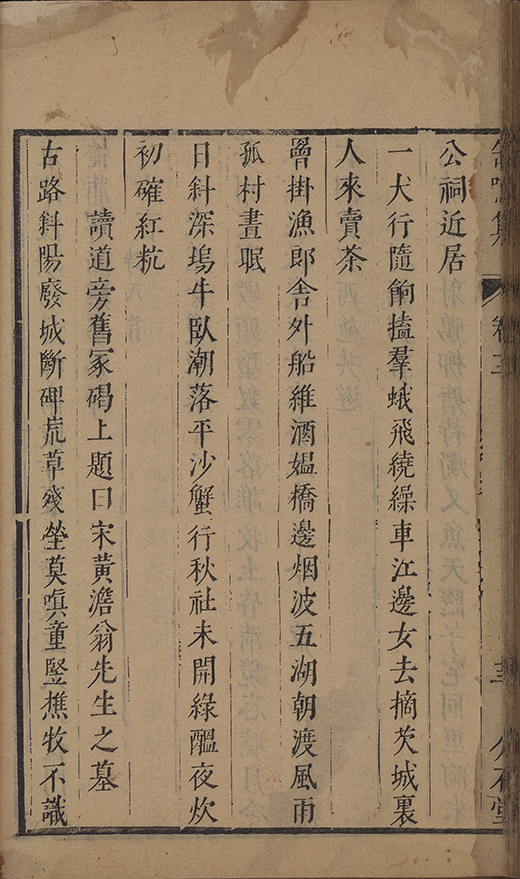 卷三
公祠近居
一犬行隨餉榼羣蛾飛繞繰車江邊女去摘茨城裏
人來賣茶
曾掛漁郎舍外船維酒媼橋邊烟波五湖朝渡風雨
孤村晝眠
日斜深塢牛臥潮落平沙蟹行秋社未開綠醞夜炊
初確紅粇
讀道旁舊冢碣上題曰宋黃澹翁先生之墓
古路斜陽廢城斷碑荒草殘塋莫嗔童豎樵牧不識